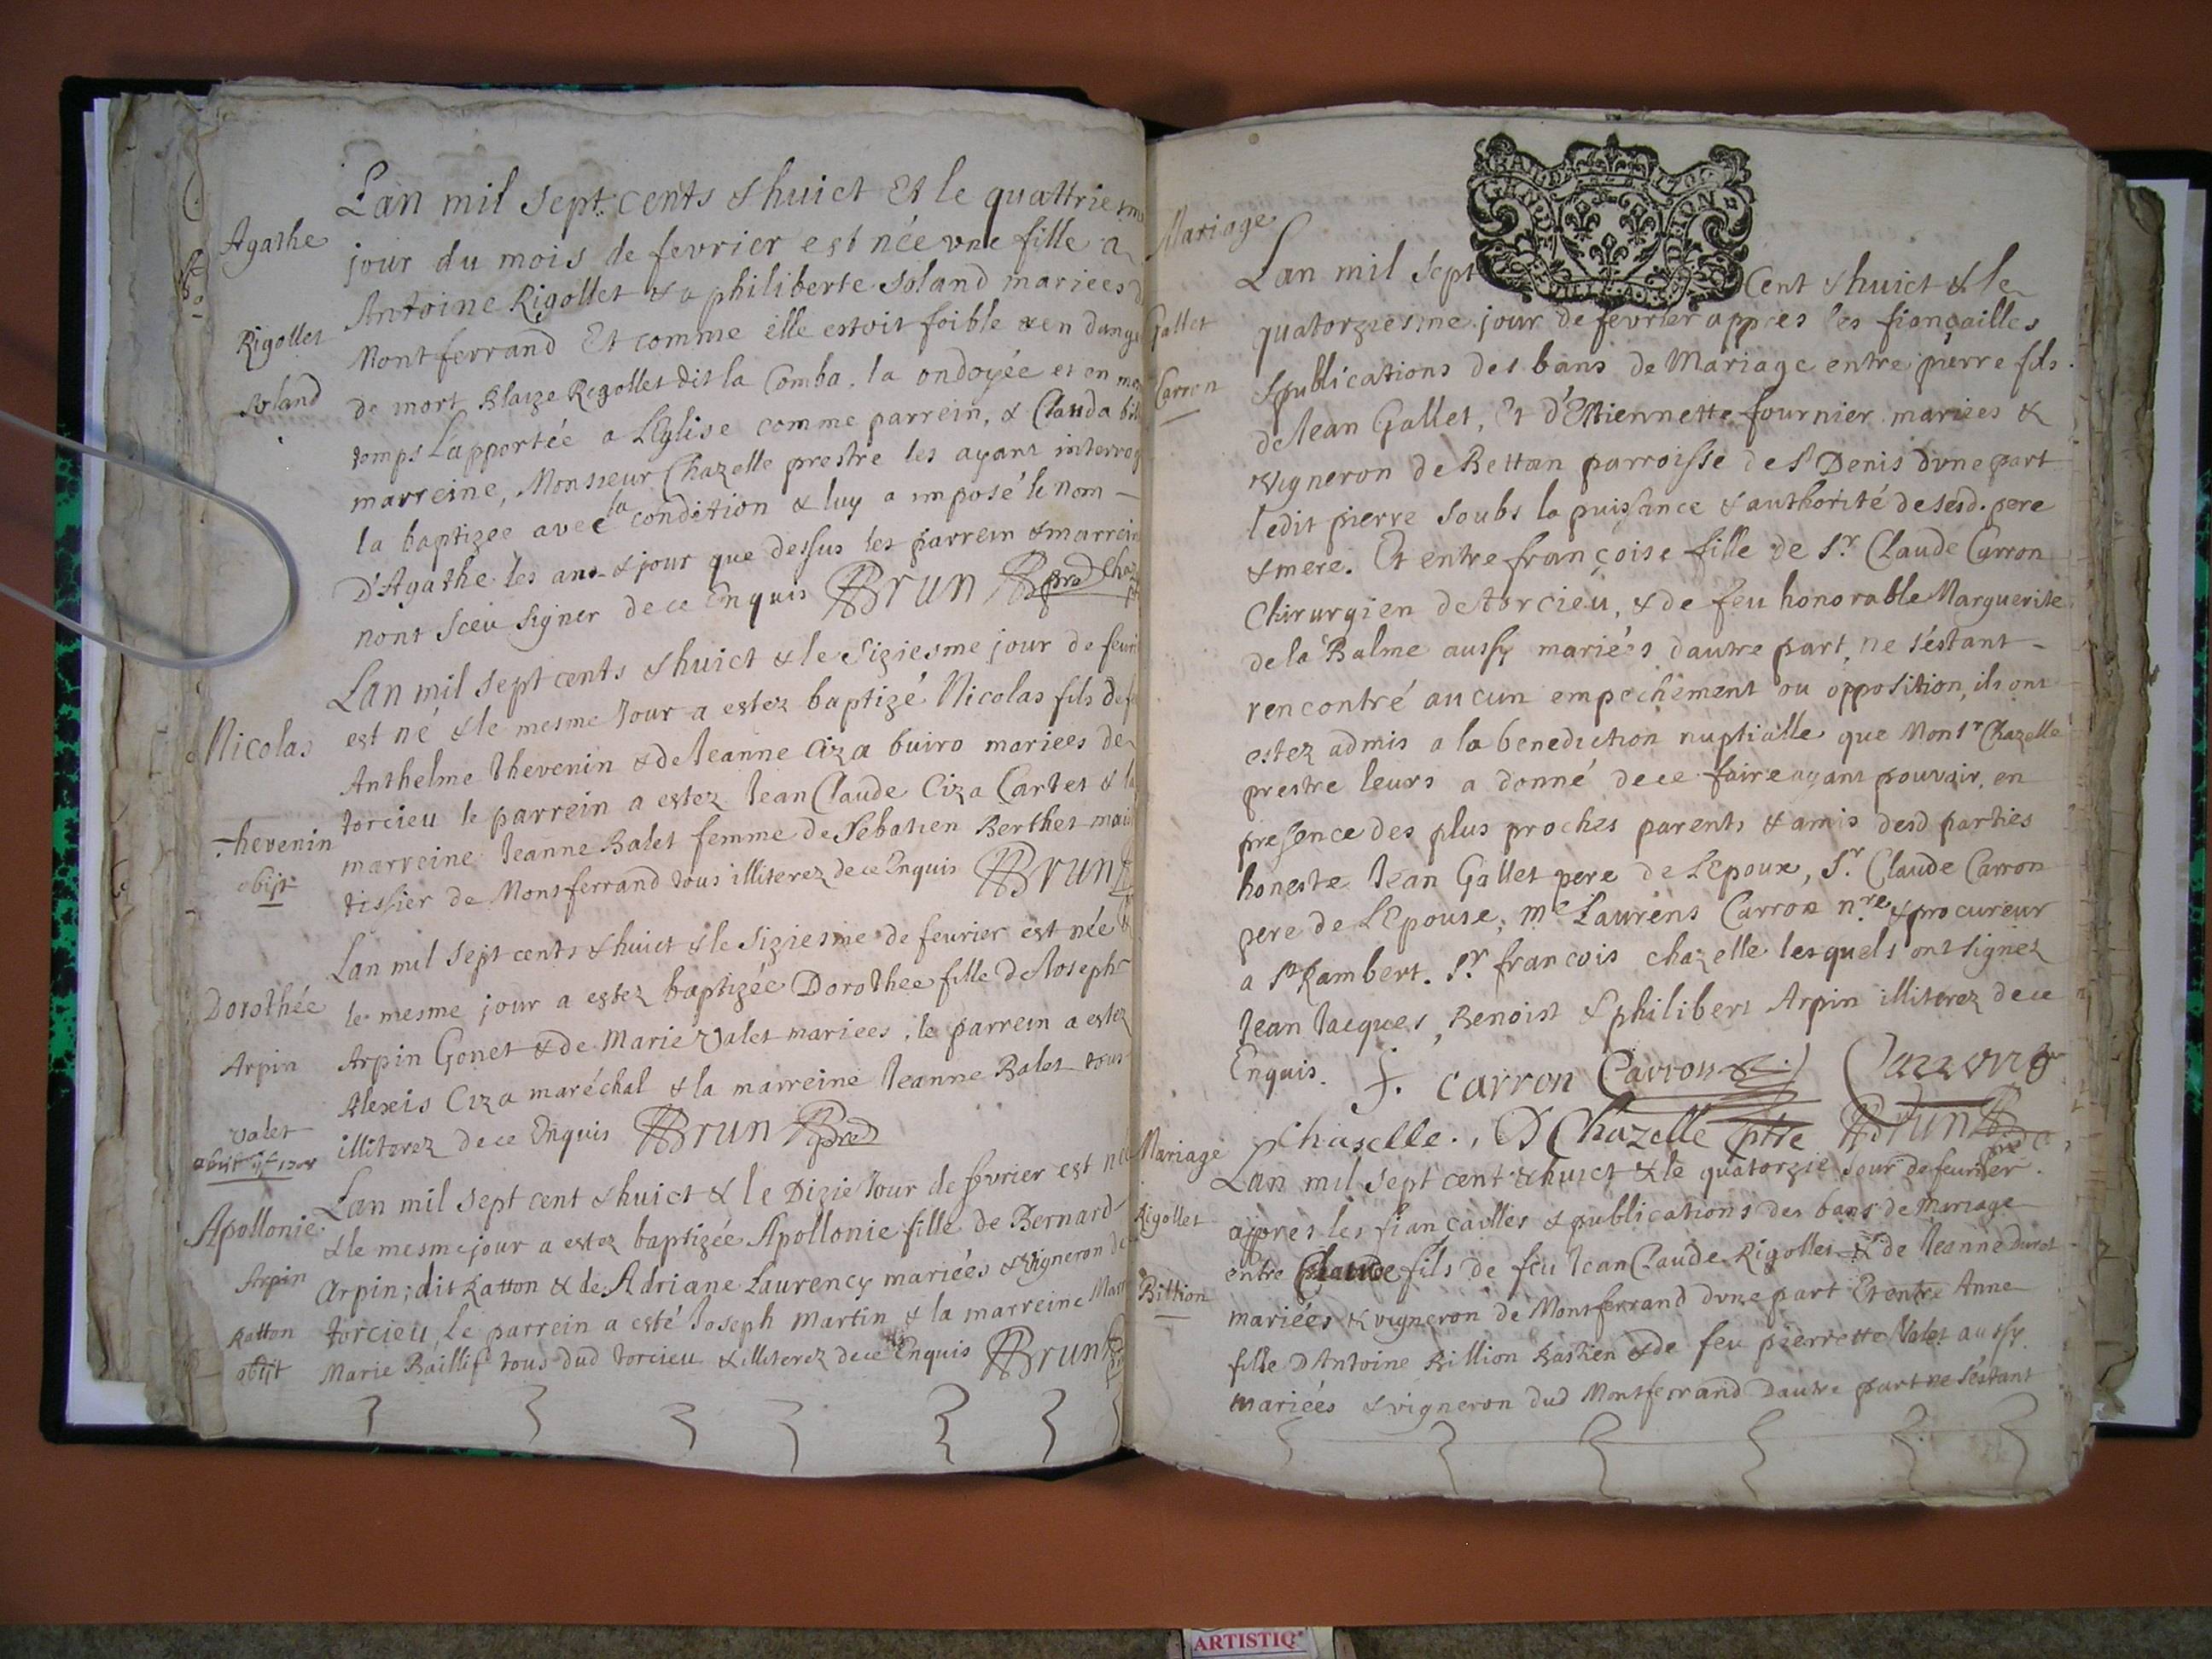 Agathe
Rigollet
Soland
Lan mil sept cents & huict Et le quattriesm
jour du mois de fevrier est née vne fille a
Antoine Rigollet & a philiberte Soland mariees d
Montferrand Et comme elle estoit foible & en dange
de mort Blaize Rigollet dit la Comba, la ondoyée et en me
temps Lapportée a LEglise comme parrein, & Clauda bill
marreine, Monsieur Chazelle prestre les ayant interrog
la baptizee avec la condition & luy a imposé le nom
D'Agathe les ans & jour que dessus les parrein & marrein
nont sceu signer de ce Enquis Brun
Nicolas
Thevenin
obijt
Lan mil sept cents & huict & le siziesme jour de fevri
est né & le mesme Jour a estez baptizé Nicolas fils de f
Anthelme Thevenin & de Jeanne Ciza buiro mariees de
torcieu le parrein a estez Jean Claude Ciza Cartet & la
marreine Jeanne Balet femme de Sebatien Berthet mai
tissier de Montferrand tous illiterez de ce Enquis Brun
Dorothée
Arpin
Valet
Lan mil sept cents & huict & le siziesme de feurier est née &
le mesme jour a estez baptizée Dorothee fille de Joseph
Arpin Gonet & de Marie Valet mariees, le parrein a estez
Alexis Ciza maréchal & la marreine Jeanne Balet tous
illiterez de ce Enquis Brun
Apollonie
Arpin
Ratton
obijt
Lan mil sept cent & huict & le Dizie Jour de fevrier est née
& le mesme jour a estez baptizée Apollonie fille de Bernard
Arpin, dit Ratton & de Adriane Laurency mariées & Vigneron de
torcieu, Le parrein a esté Joseph Martin & la marreine
Marie Baillif tous dud torcieu & illiterez de ce Enquis Brun
Mariage
Gallet
Carron
Lan mil sept Cent & huict & le
quatorziesme jour de fevrier appres les fiançailles
& publications des bans de Mariage entre pierre fils
de Jean Gallet, Et d'Estiennette fournier mariees &
vigneron de Bettan parroisse de St Denis dvne part
ledit pierre soubs la puissance & authorité de sesd. pere
& mere. Et entre françoise fille de Sr. Claude Carron
Chirurgien de torcieu, & de feu honorable Marguerite
de la Balme aussy mariés dautre part, ne s'éstant
rencontré aucun empechement ou opposition, ils ont
estez admis a la benediction nuptialle que Monsr Chazelle
prestre leurs a donné de ce faire ayant pouvoir, en
presence des plus proches parents & amis desd parties
honeste Jean Gallet pere de LEpoux, Sr. Claude Carron
pere de LEpouse, Me Laurens Carron nre. & procureur
a St Rambert. Sr francois chazelle lesquels ont signez
Jean Jacques, Benoist & philibert Arpin illiterez de ce
Enquis. f. carron Carron Carron
Chaselle., Chazelle ptre Brun
Mariage
Rigollet
Billion
Lan mil sept cent & huict & le quatorzie Jour de feurier
appres les fiançailles & publications des bans de Mariage
entre Claude fils de feu Jean Claude Rigollet & de Jeanne Durat
mariées & vigneron de Montferrand dvne part Et entre Anne
fille D'Antoine Billion Bastien & de feu pierrette Valet aussy
mariées & vigneron dud Montferrand Dautre part ne s'éstant
ARTISTIQ